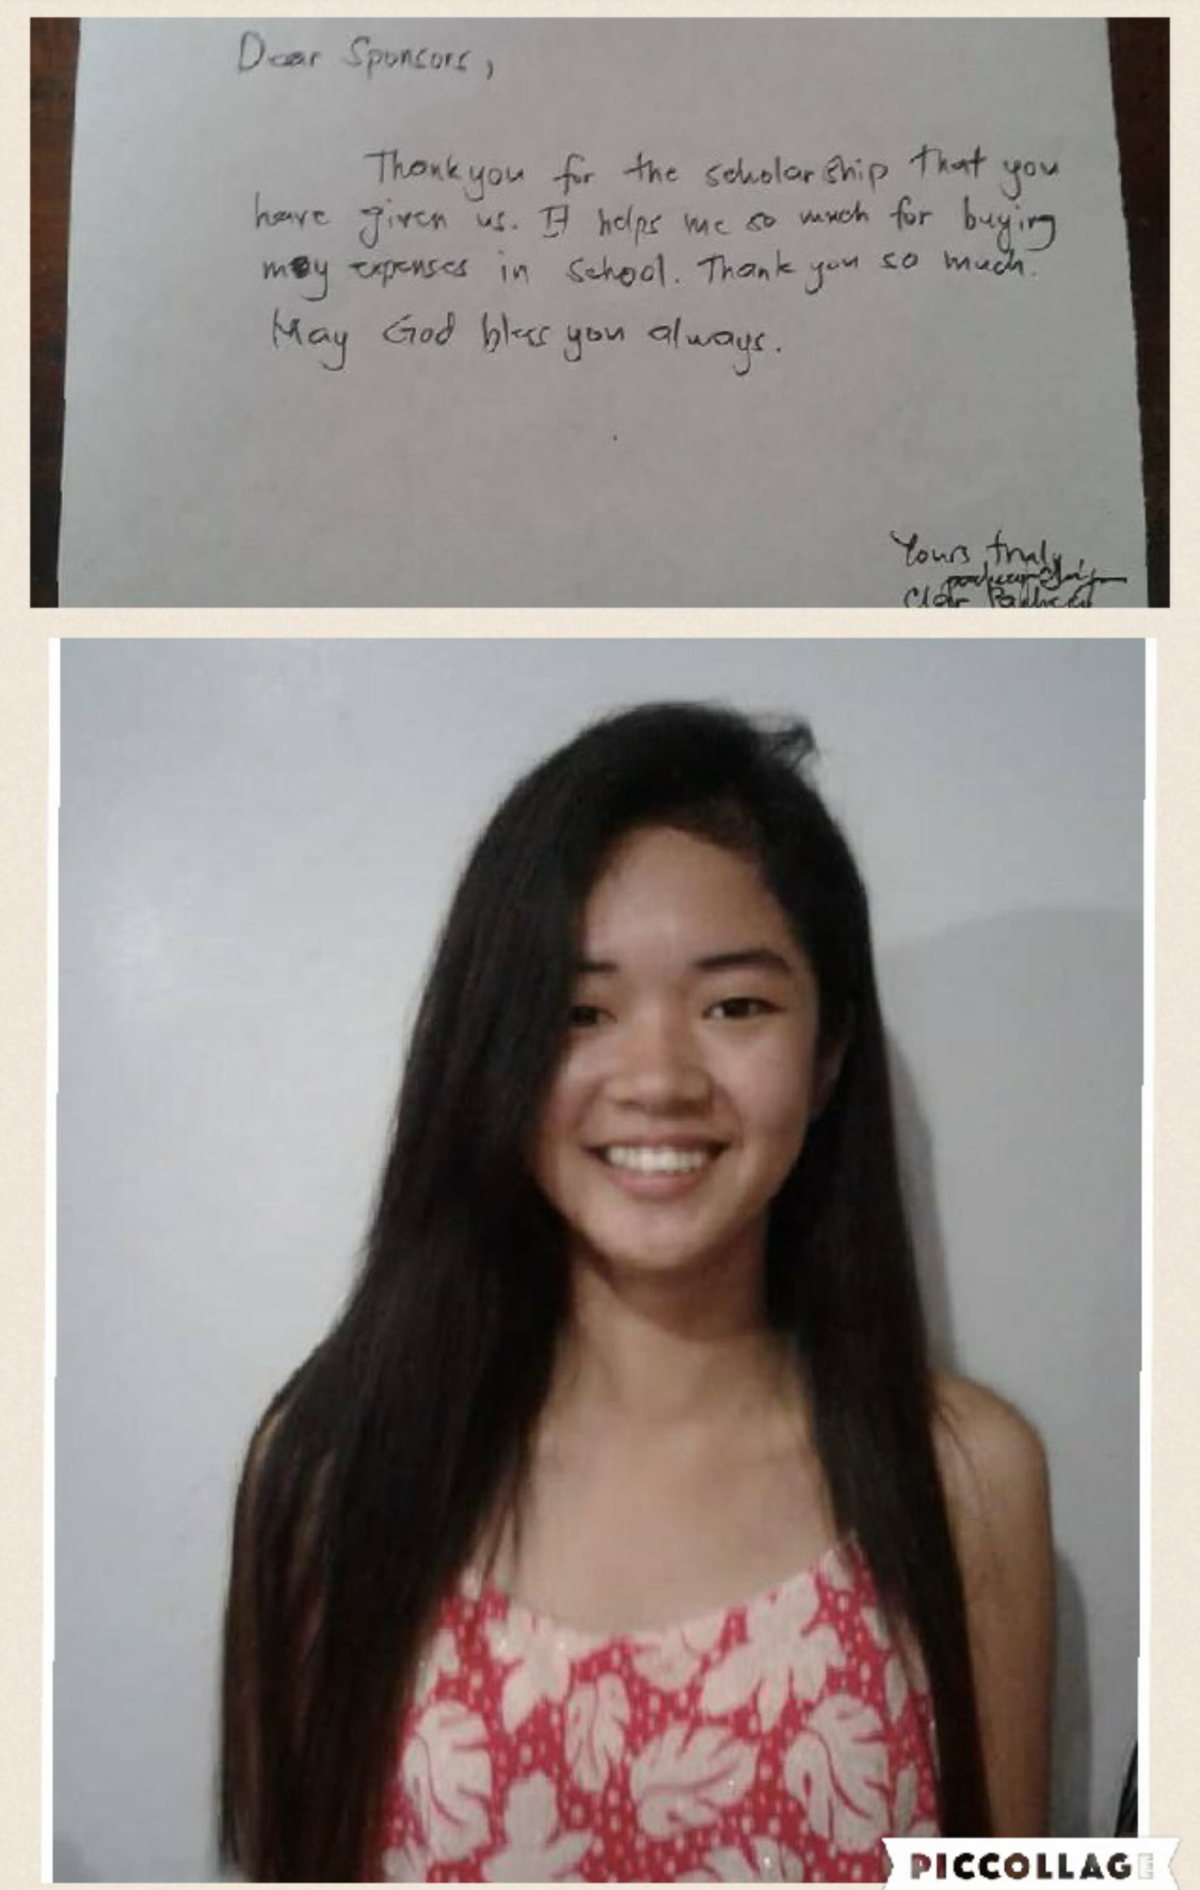 Dear Sponsors,
Thank you for the scholarship that you
have given us. It helps me so much for buying
may expenses in school. Thank you so much.
May God bless you always.
Yours truly,
Clair
PICCOLLAGE